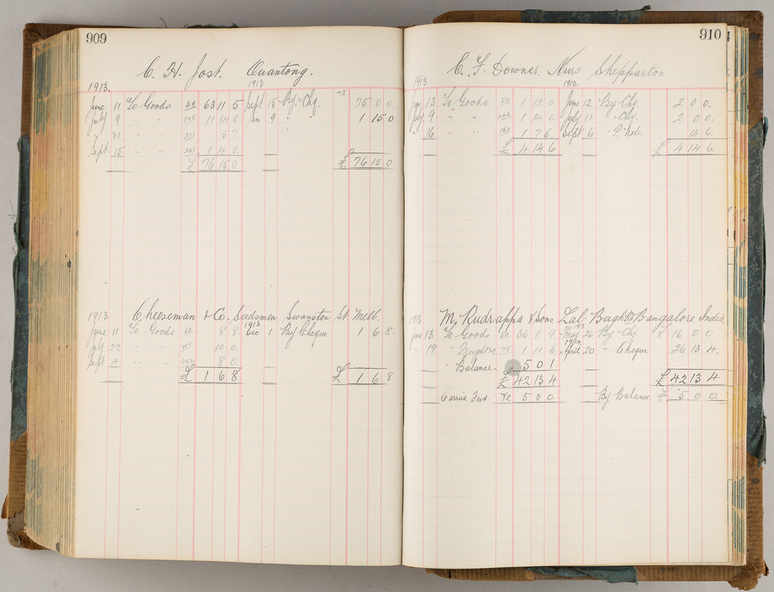 909
C. H. Jost. Quantong.
1913. 1913
June 11 To Goods 63 11 5 Sept 15 By Chq. 75 0 0
July 9 " " 11 14 0 " 9 " 1 15 0
" 31 " " 5 7
Sept. 15 " " 1 4 0
£ 76 15 0 £ 76 15 0
1913 Cheeseman & Co. Seedsmen Swanston St. Melb
1913
June 11 To Goods 8 8 Dec 1 By Cheque 1 6 8
July 22 " " 10 0
Sept 4 " " 8 0
£ 1 6 8 £ 1 6 8
910
C. F. Downer Nurs Shepparton
1913 1913
June 13 To Goods 1 13 0 June 12 By Chq. 2 0 0
July 9 " " 1 14 0 July 11 " Chq. 2 0 0
" 16 " " 1 7 6 Sept 6 " P. Note 14 6
£ 4 14 6 £ 4 14 6
1913 M. Rudrappa & Sons Lal-Bagh Rd Bangalore India
June 13 To Goods 36 1 9 26 By Chq £ 16 0 0
19 " Freight 1 11 6 April 20 " Cheque 26 13 4
" Balance 5 0 1
£ 42 13 4 £ 42 13 4
Carried Fwd. 5 0 0 By Balance £ 5 0 0